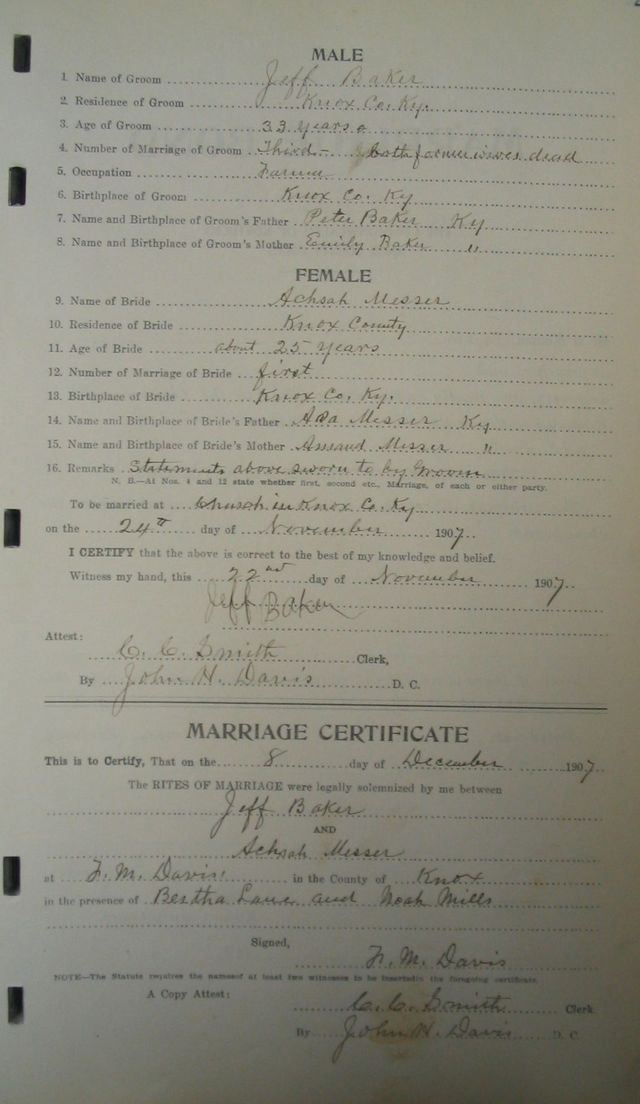 MALE
1. Name of Groom Jeff Baker
2. Residence of Groom Knox Co. Ky.
3. Age of Groom 33 Years
4. Number of Marriage of Groom Third - both former wives dead
5. Occupation Farmer
6. Birthplace of Groom Knox Co. Ky
7. Name and Birthplace of Groom's Father Peter Baker Ky
8. Name and Birthplace of Groom's Mother Emily Baker "
FEMALE
9. Name of Bride Achsah Messer
10. Residence of Bride Knox County
11. Age of Bride about 25 years
12. Number of Marriage of Bride first
13. Birthplace of Bride Knox Co. Ky.
14. Name and Birthplace of Bride's Father Messer Ky
15. Name and Birthplace of Bride's Mother Messer "
16. Remarks Statements above sworn to by Groom
N. B.—At Nos. 4 and 12 state whether first, second etc., Marriage, of each or either party.
To be married at Church in Knox Co. Ky
on the 24th day of November 1907.
I CERTIFY that the above is correct to the best of my knowledge and belief.
Witness my hand, this 22nd day of November 1907
Jeff Baker
Attest:
C. C. Smith Clerk,
By John H. Davis D. C.
MARRIAGE CERTIFICATE
This is to Certify, That on the 8 day of December 1907
The RITES OF MARRIAGE were legally solemnized by me between
Jeff Baker
AND
Achsah Messer
at M. Davis' in the County of Knox
in the presence of Bertha Lane and Noah Mills
Signed,
M. Davis
NOTE—The Statute requires the names of at least two witnesses to be inserted in the foregoing certificate.
A Copy Attest:
C. C. Smith Clerk
By John H. Davis D. C.